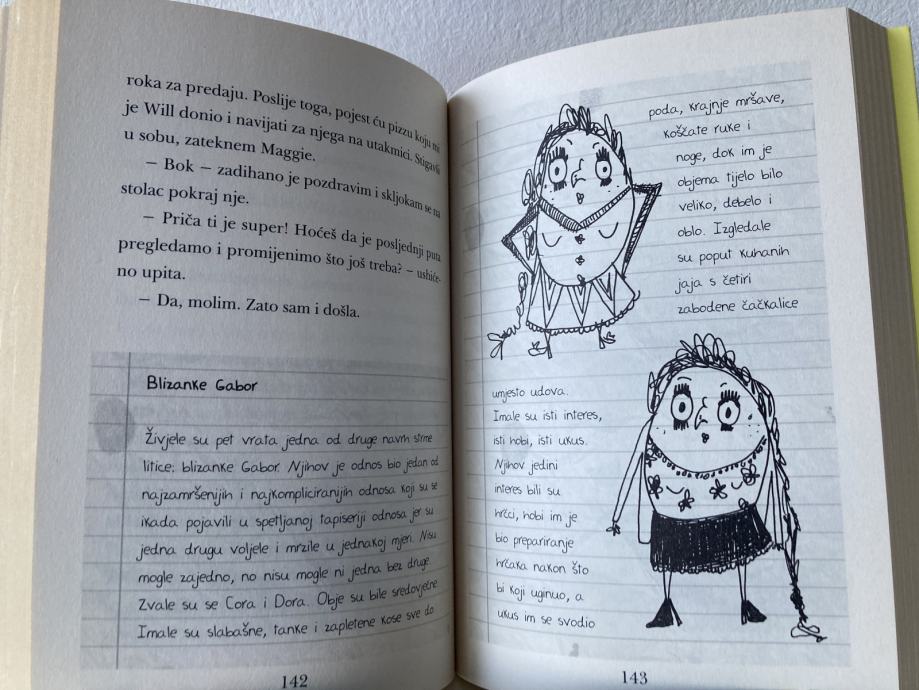 roka za predaju. Poslije toga, pojest ću pizzu koju mi
je Will donio i navijati za njega na utakmici. Stigavši
u sobu, zateknem Maggie.
– Bok – zadihano je pozdravim i skljokam se na
stolac pokraj nje.
– Priča ti je super! Hoćeš da je posljednji puta
pregledamo i promijenimo što još treba? – ushiće-
no upita.
– Da, molim. Zato sam i došla.
Blizanke Gabor
Živjele su pet vrata jedna od druge navrh strme
litice: blizanke Gabor. Njihov je odnos bio jedan od
najzamršenijih i najkompliciranijih odnosa koji su se
ikada pojavili u spetljanoj tapiseriji odnosa jer su
jedna drugu voljele i mrzile u jednakoj mjeri. Nisu
mogle zajedno, no nisu mogle ni jedna bez druge.
Zvale su se Cora i Dora. Obje su bile sredovječne.
Imale su slabašne, tanke i zapletene kose sve do
142
poda, krajnje mršave,
koščate ruke i
noge, dok im je
objema tijelo bilo
veliko, debelo i
oblo. Izgledale
su poput kuhanih
jaja s četiri
zabodene čačkalice
umjesto udova.
Imale su isti interes,
isti hobi, isti ukus.
Njihov jedini
interes bili su
hrčci, hobi im je
bio prepariranje
hrčaka nakon što
bi koji uginuo, a
ukus im se svodio
143